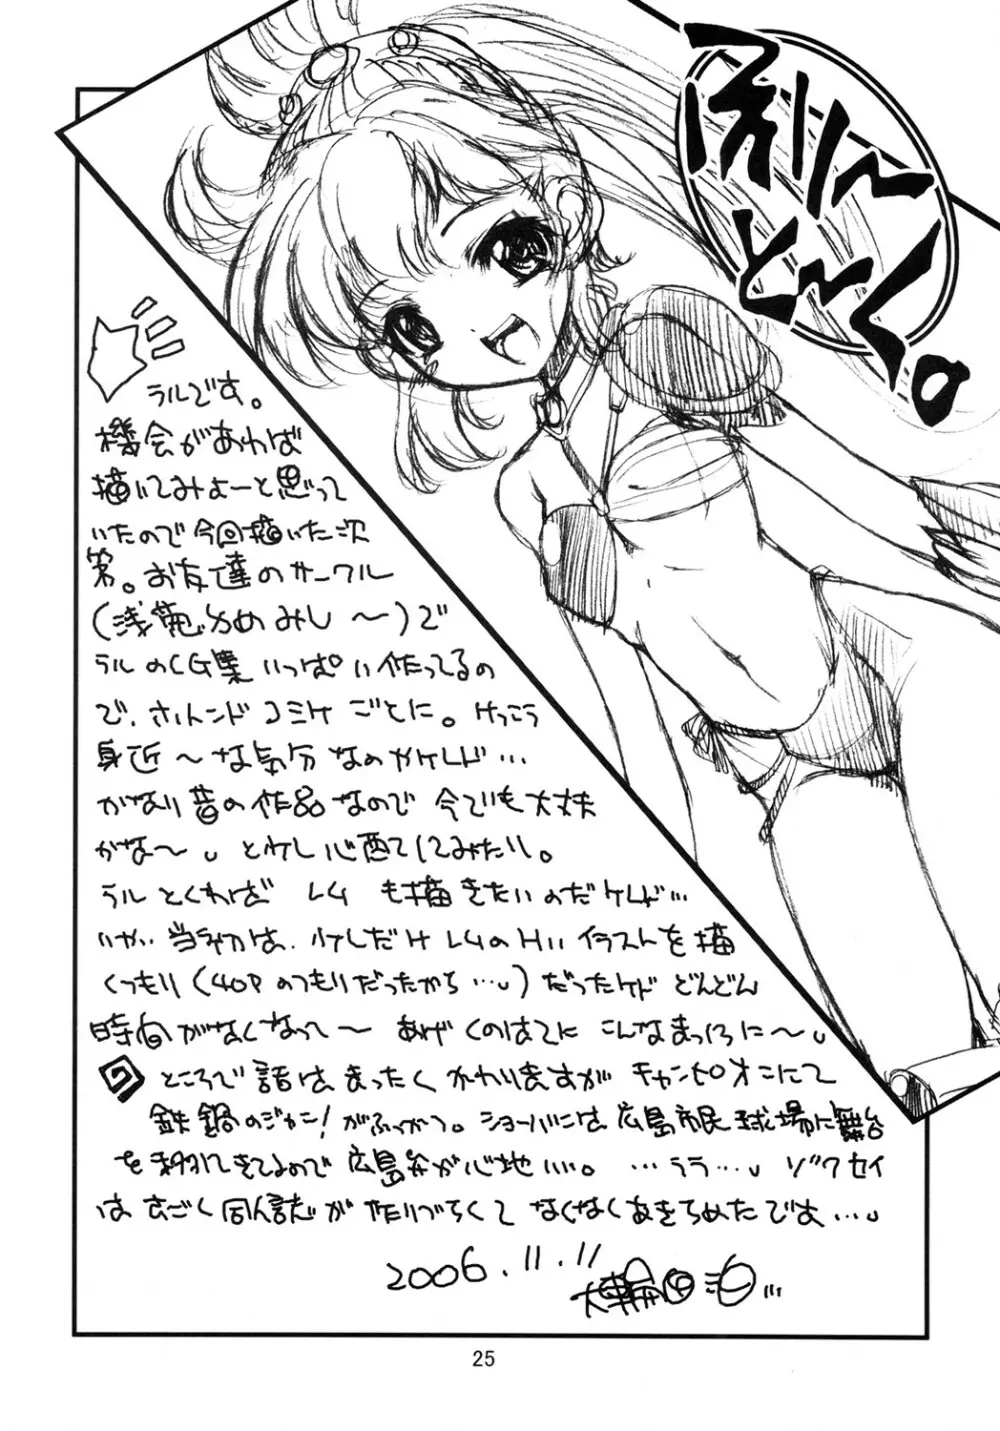 ふりーとーく。
ラルです。
機会があれば
描いてみよーと思って
いたので今回描いた次
第。お友達のサークル
(浅葱かめみし〜)で
ラルのCG集いっぱい作ってるの
で、ホントンドコミケごとに。けっこう
身近〜な気分なのやけレド…
かなり昔の作品なので今でも大丈夫
かな〜。と少し心配してみたり。
ラルとくれば LG も描きたいのだケレド…
いや、当初は、少しだけLGのHいイラストを描
くつもり(40Pのつもりだったから…)だったケド どんどん
時間がなくなって〜 あげくのはてに こんなまっ白に〜
ところで話はまったくかわりますが チャンピオンにて
鉄鍋のジャン!がふっかつ。ショーバンには広島市民球場に舞台
を移してきてるので広島弁が心地いい。…うう… ゾクセイ
はすごく同人誌が作りづらくて なくなくあきらめたです…
2006.11.11
25